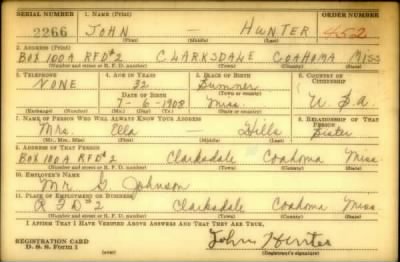 SERIAL NUMBER 1. NAME (Print) ORDER NUMBER
2266 JOHN — HUNTER 452
(First) (Middle) (Last)
2. ADDRESS (Print)
BOX 100A RFD#2 CLARKSDALE COAHOMA MISS
(Number and street or R. F. D. number) (Town) (County) (State)
3. TELEPHONE 4. AGE IN YEARS 5. PLACE OF BIRTH 6. COUNTRY OF CITIZENSHIP
NONE 32 Sumner
DATE OF BIRTH (Town or county)
7-6-1908 Miss. U.S.A
(Exchange) (Number) (Mo.) (Day) (Yr.) (State or country)
7. NAME OF PERSON WHO WILL ALWAYS KNOW YOUR ADDRESS 8. RELATIONSHIP OF THAT PERSON
Mrs. Ella — Hills Sister
(Mr., Mrs., Miss) (First) (Middle) (Last)
9. ADDRESS OF THAT PERSON
BOX 100A RFD#2 Clarksdale Coahoma Miss.
(Number and street or R. F. D. number) (Town) (County) (State)
10. EMPLOYER'S NAME
Mr G. Johnson
11. PLACE OF EMPLOYMENT OR BUSINESS
RFD#2 Clarksdale Coahoma Miss
(Number and street or R. F. D. number) (Town) (County) (State)
I AFFIRM THAT I HAVE VERIFIED ABOVE ANSWERS AND THAT THEY ARE TRUE.
REGISTRATION CARD John Hunter
D. S. S. Form 1 (over) (Registrant's signature)